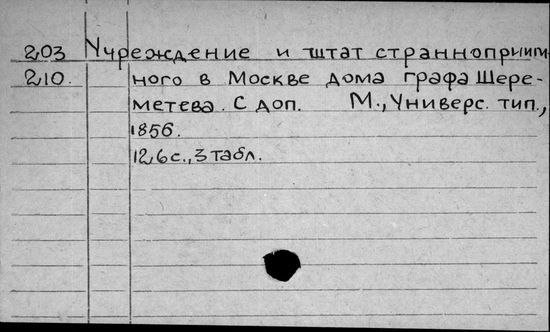 203 Учреждение и штат странноприим-
210. ного в Москве дома графа Шере-
метева. С доп. М., Универс. тип.,
1856.
126с., 3 табл.